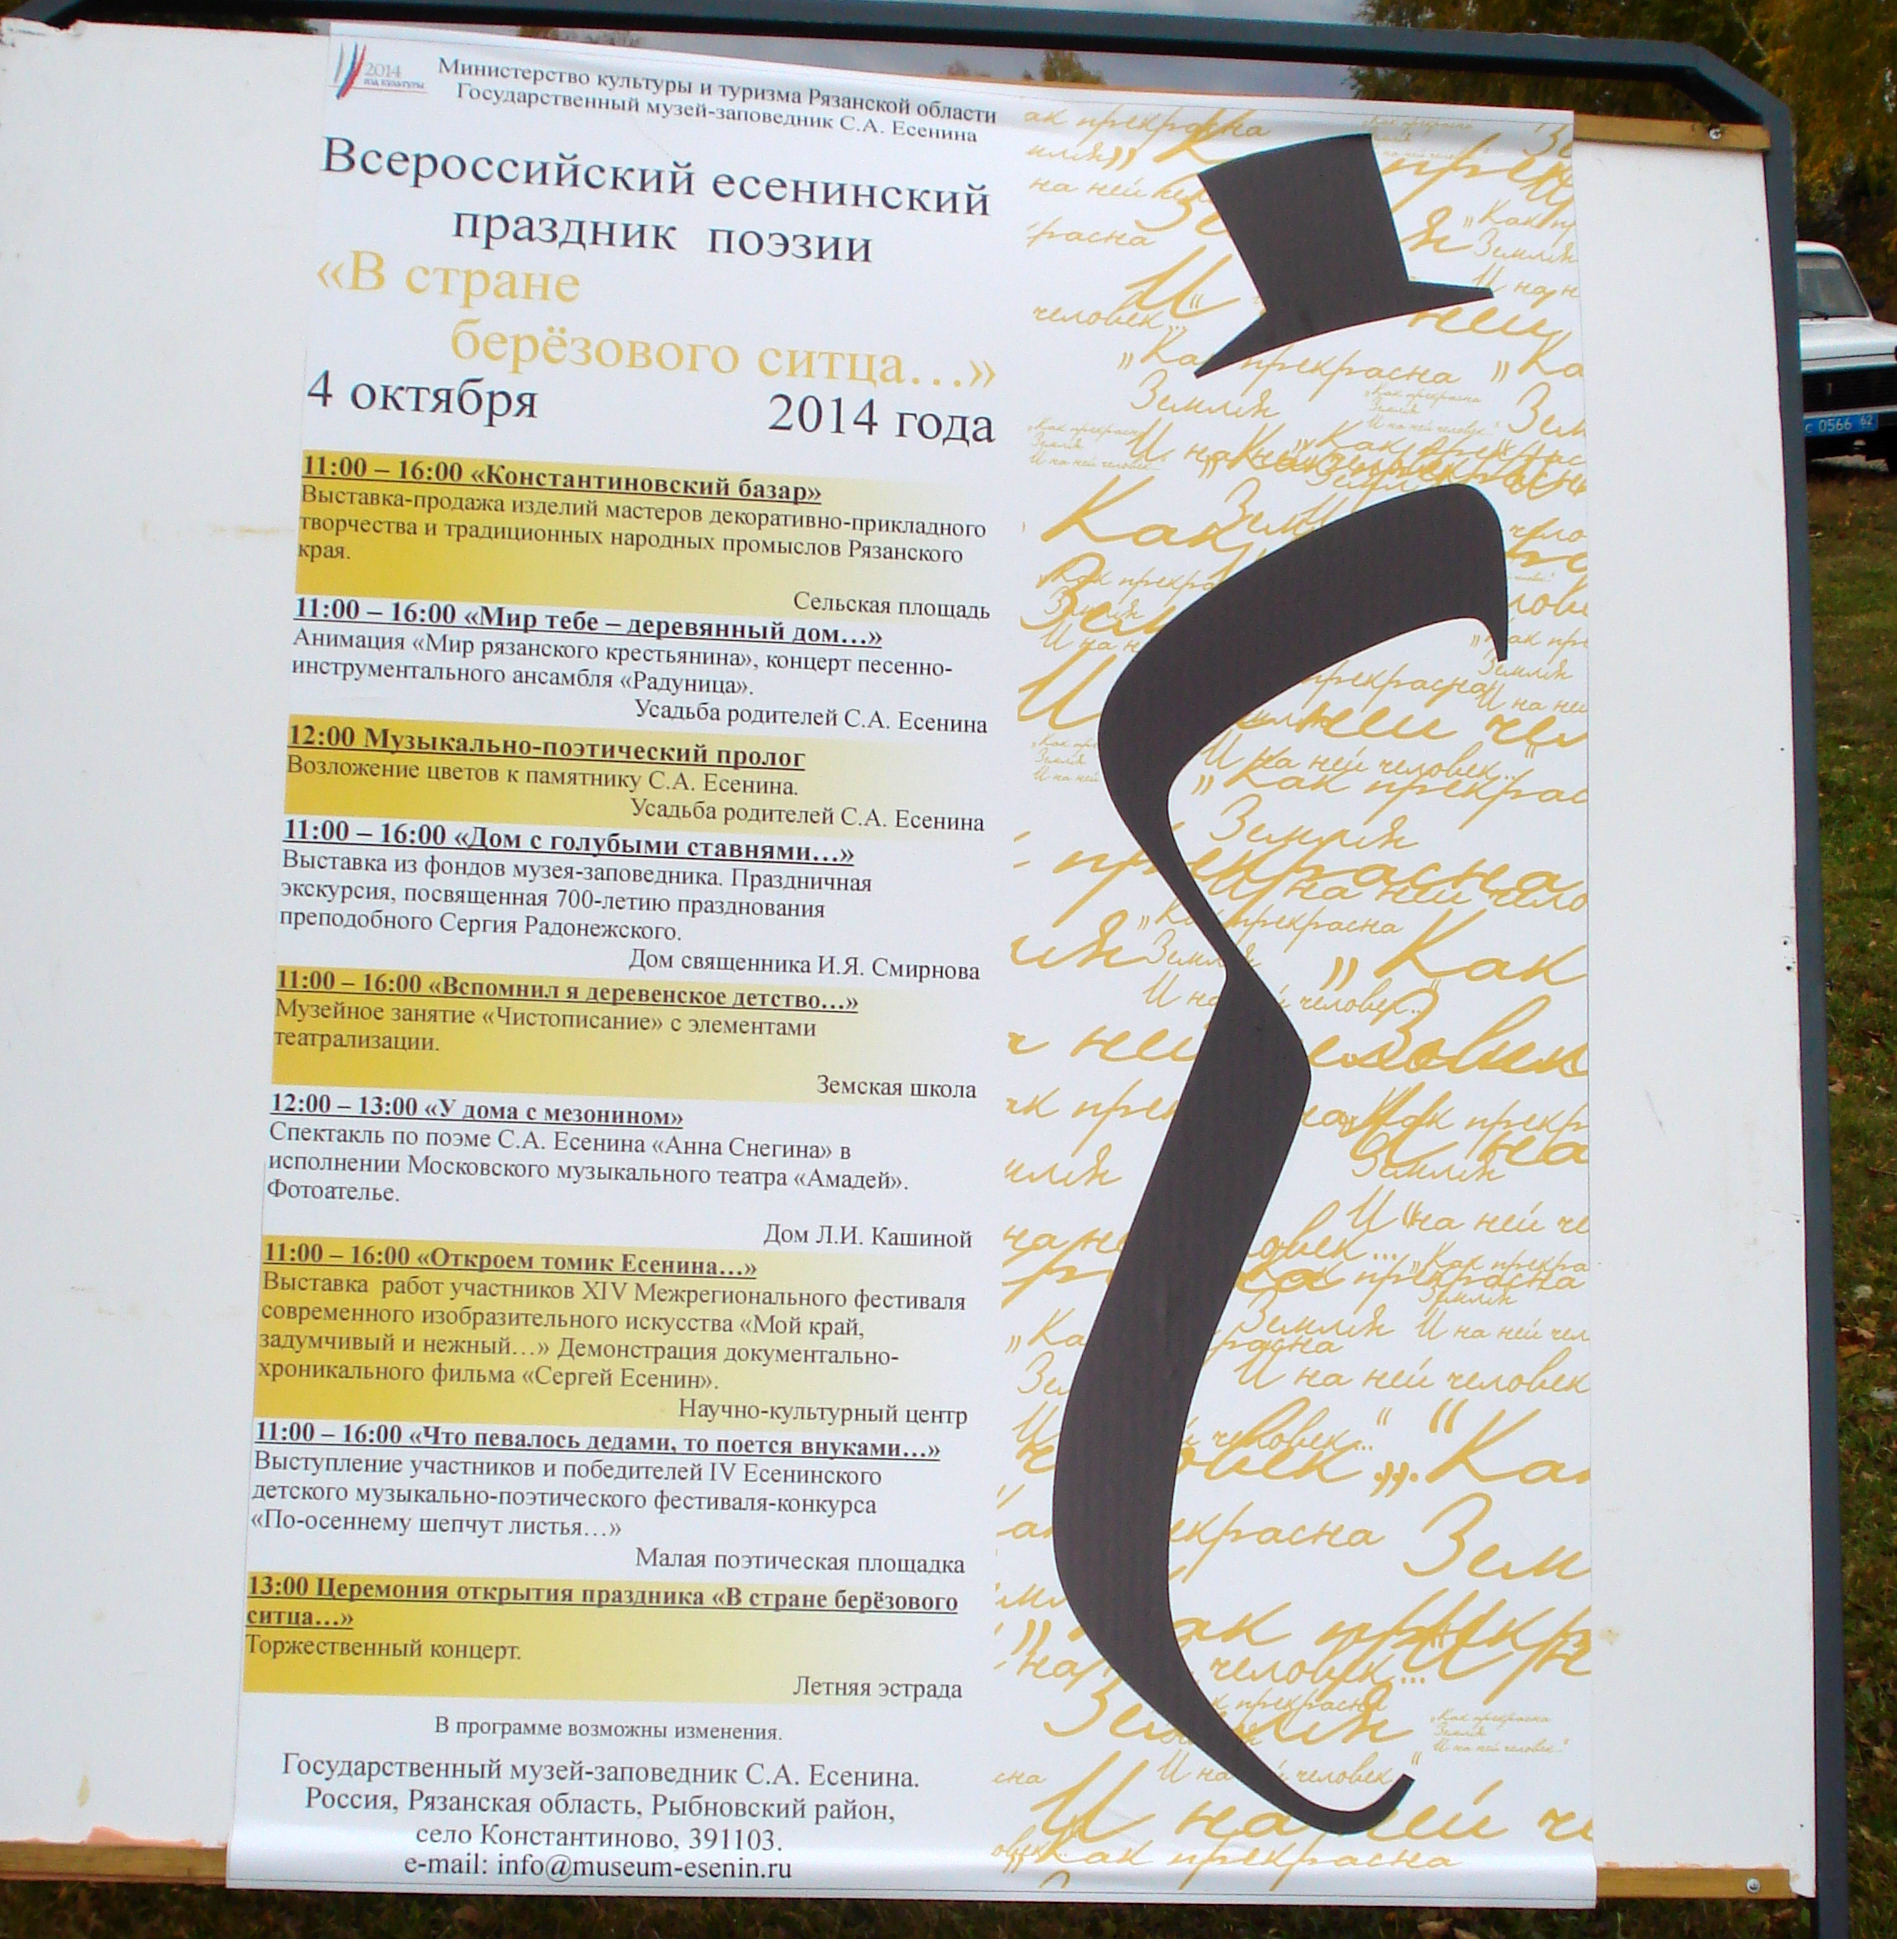 2014
год культуры
Министерство культуры и туризма Рязанской области
Государственный музей-заповедник С.А. Есенина
Всероссийский есенинский
праздник поэзии
«В стране
берёзового ситца…»
4 октября 2014 года
11:00 – 16:00 «Константиновский базар»
Выставка-продажа изделий мастеров декоративно-прикладного
творчества и традиционных народных промыслов Рязанского
края.
Сельская площадь
11:00 – 16:00 «Мир тебе – деревянный дом…»
Анимация «Мир рязанского крестьянина», концерт песенно-
инструментального ансамбля «Радуница».
Усадьба родителей С.А. Есенина
12:00 Музыкально-поэтический пролог
Возложение цветов к памятнику С.А. Есенина.
Усадьба родителей С.А. Есенина
11:00 – 16:00 «Дом с голубыми ставнями…»
Выставка из фондов музея-заповедника. Праздничная
экскурсия, посвященная 700-летию празднования
преподобного Сергия Радонежского.
Дом священника И.Я. Смирнова
11:00 – 16:00 «Вспомнил я деревенское детство…»
Музейное занятие «Чистописание» с элементами
театрализации.
Земская школа
12:00 – 13:00 «У дома с мезонином»
Спектакль по поэме С.А. Есенина «Анна Снегина» в
исполнении Московского музыкального театра «Амадей».
Фотоателье.
Дом Л.И. Кашиной
11:00 – 16:00 «Откроем томик Есенина…»
Выставка работ участников XIV Межрегионального фестиваля
современного изобразительного искусства «Мой край,
задумчивый и нежный…» Демонстрация документально-
хроникального фильма «Сергей Есенин».
Научно-культурный центр
11:00 – 16:00 «Что певалось дедами, то поется внуками…»
Выступление участников и победителей IV Есенинского
детского музыкально-поэтического фестиваля-конкурса
«По-осеннему шепчут листья…»
Малая поэтическая площадка
13:00 Церемония открытия праздника «В стране берёзового
ситца…»
Торжественный концерт.
Летняя эстрада
В программе возможны изменения.
Государственный музей-заповедник С.А. Есенина.
Россия, Рязанская область, Рыбновский район,
село Константиново, 391103.
e-mail: info@museum-esenin.ru
„Как прекрасна
Земля
И на ней человек..."
с 0566 62